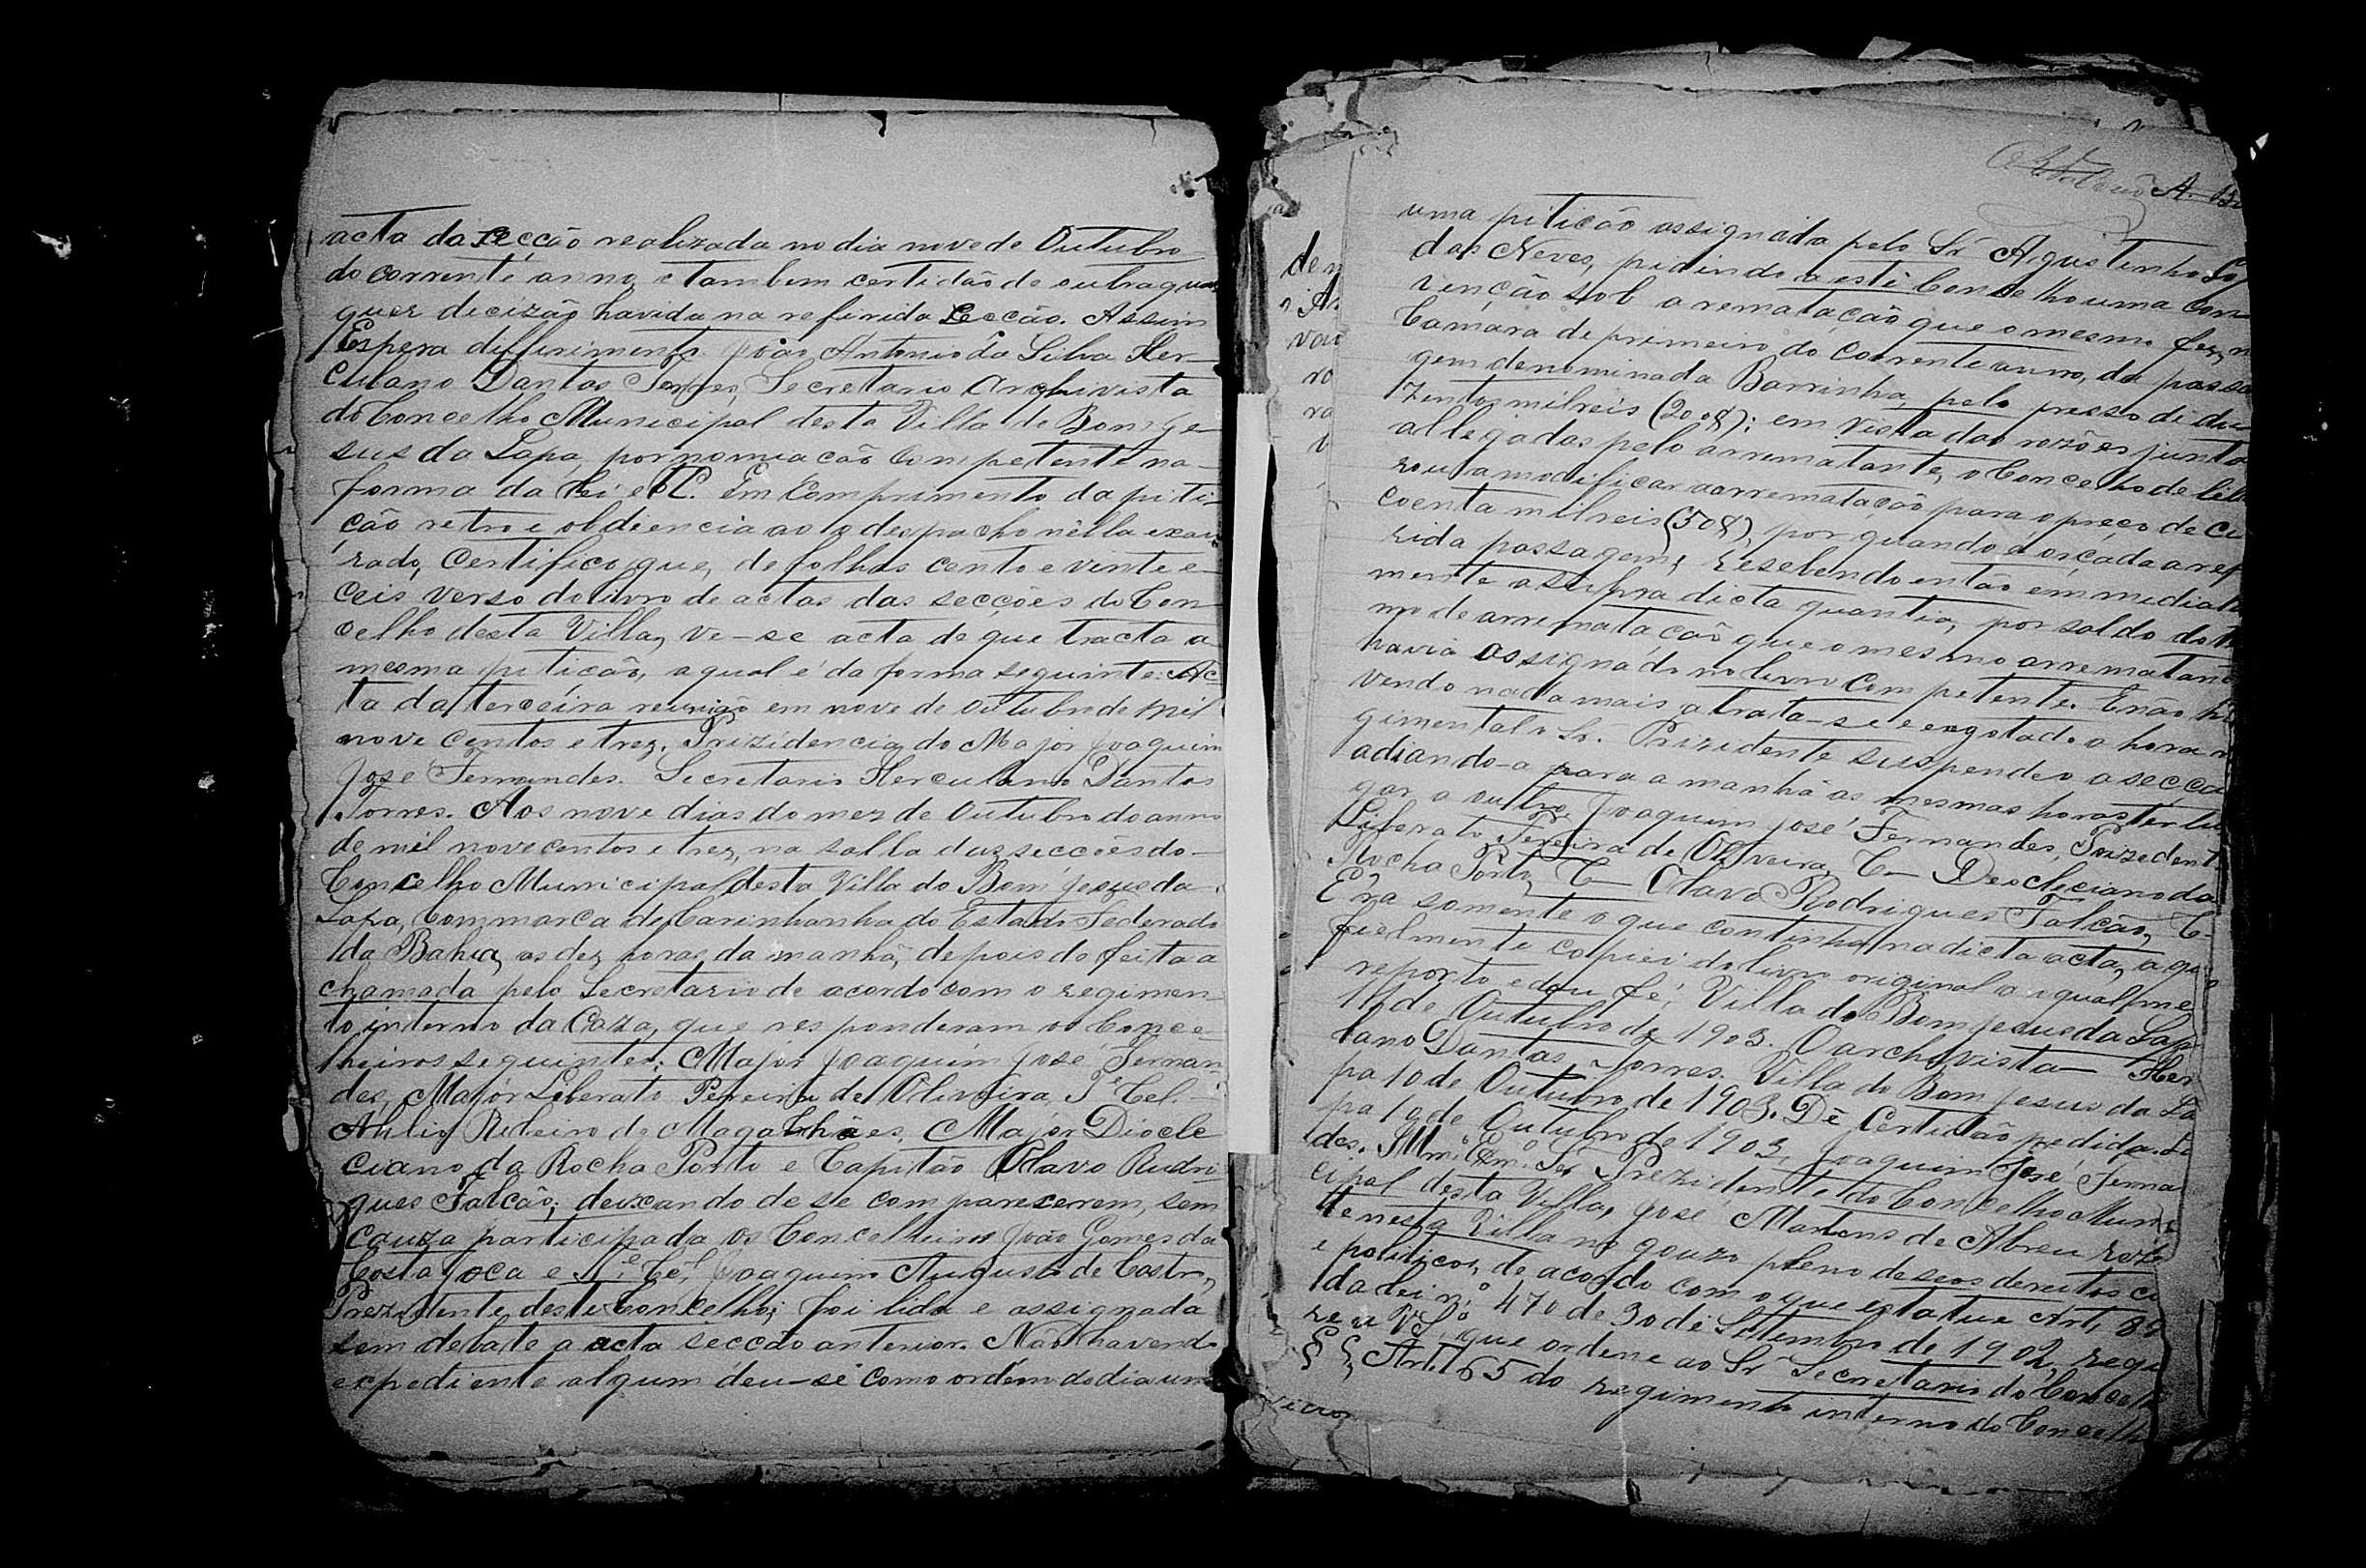 acta da secção realizada no dia nove de Outubro
do corrente anno, e tambem certidão de outra qual
quer decizão havida na referida Secção. Assim
Espera differimento. João Antonio da Silva Her-
culano Dantas Torres, Secretario Archivista
do Concelho Municipal desta Villa de Bom Je-
sus da Lapa, por nomiacão Competente na-
forma da Lei etc. Em Comprimento da piti-
cão retro e obdiencia ao o despacho nélla exa
rado, Certifico que, de folhas cento e vinte e-
ceis verso do livro de actas das secções do Con
celho desta Villa, ve-se acta de que tracta a
mesma pitição, a qual é da forma seguinte: Ac
ta da terceira reunião em nove de Outubro de mil
nove centos e trez. Prizidencia do Major Joaquim
José Fernandes. Secretario Herculano Dantas
Torres. Aos nove dias do mez de Outubro do anno
de mil nove centos e trez, na salla das secções do-
Concelho Municipal desta Villa do Bom Jezus da
Lapa, Commarca de Carinhanha do Estado Federado
da Bahia, as dez horas da manhã, depois de feita a
chamada pelo Secretario de acordo com o regimen
to interno da Caza, que responderam os Conce-
lheiros seguintes: Major Joaquim José Fernan
des, Major Liberato Pereira de Oliveira, Te Cel.
Ribeiro de Magalhães, Major Diocle
ciano da Rocha Porto e Capitão Olavo Rudri
gues Falcão; deixando de se comparecerem, sem
cauza participada os Concelheiros João Gomes da
Costa Joca e Te Cel Joaquim Augusto de Castro,
Prezidente deste Concelho; foi lida e assignada
sem debate a acta secção anterior. Não havendo
expediente algum deu-se como ordem do dia um
uma piticão assignada pelo Sr Agustinho
das Neves, pidindo a este Concelho uma Con
venção sob a rematação que o mesmo fez, n
Camara de primeiro do corrente anno, da passa
gem denominada Barrinha, pelo presso di du
zentos mil reis (200$); em vista das rozões junto
allegadas pelo arrematante, o Concelho delibe
rou a modificar a arrematacão para o preço de ci
coenta mil reis (50$), por quando é orçada a ref
rida passagem, resebendo então emmediata
mente a supra dicta quantia, por saldo do te
mo de arrematação que o mesmo arrematan
havia assignado no livro Competente. E não ha
vendo nada mais a trata-se e exgotado a hora re
gimental o Sr. Prizidente suspendeo a secção
adiando-a para a manhã as mesmas horas ter lu
gar a outra. Joaquim José Fernandes, Prizedent.
Liberato Pereira de Oliveira, C- Deocleciano da
Rocha Porto, C- Olavo Rodrigues Falcão, C-
Era somente o que continha na dicta acta, a qu
fielmente copiei do livro original a o qual me
reporto e dou fé. Villa do Bom Jesus da Lap
de Outubro de 1903. O archivista- Her
lano Dantas Torres. Villa do Bom Jesus da La
pa 10 de Outubro de 1903. Dê Certidão pedida.
pa 10 de Outubro de 1903, Joaquim José Ferna
des. Illmo Exmo Ser Prezidente do Concelho Muni
cipal desta Villa, José Martens de Abreu rezi
te nesta Villa no gouzo pleno de seos dereitos ci
e politicos, de acordo com o que estatue Art. 89
da lei no 470 de 30 de Settembro de 1902, requ
re a V. So que ordene ao Sr Secretario do Concelh
§ §, Art. 65 do regimento interno do Concelh